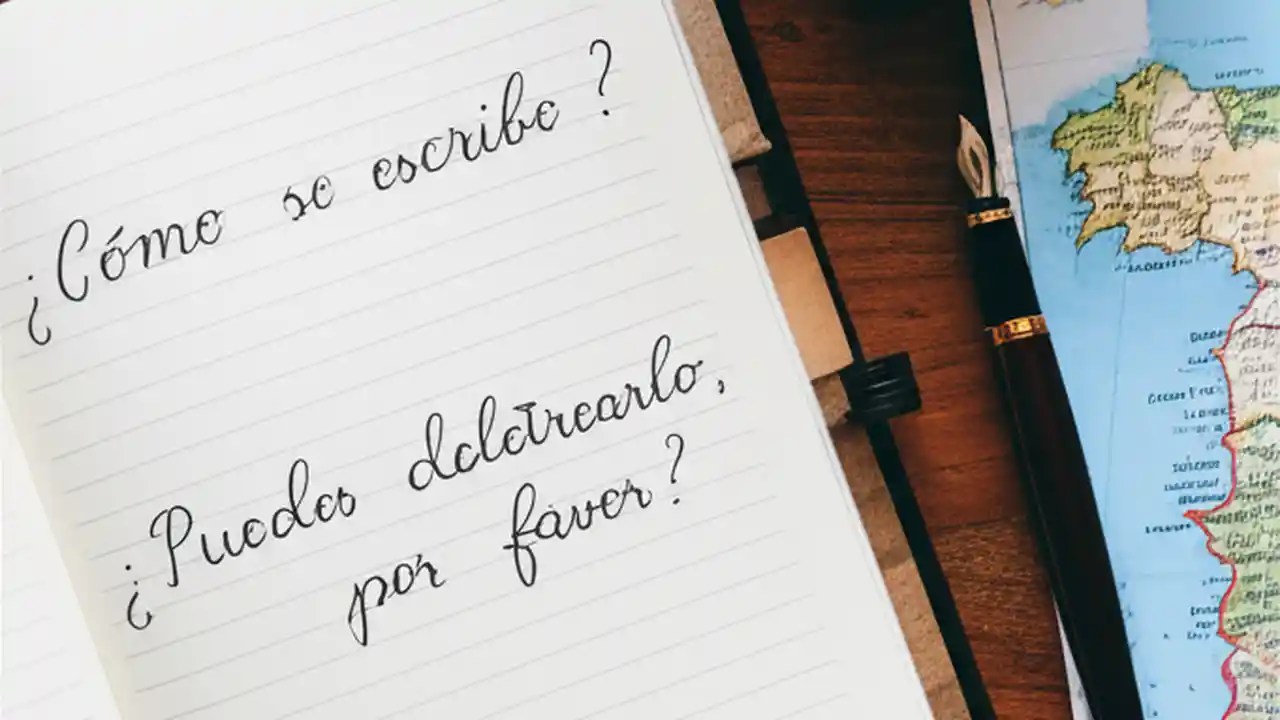 ¿Cómo se escribe?
¿Puedes deletrearlo,
por favor?